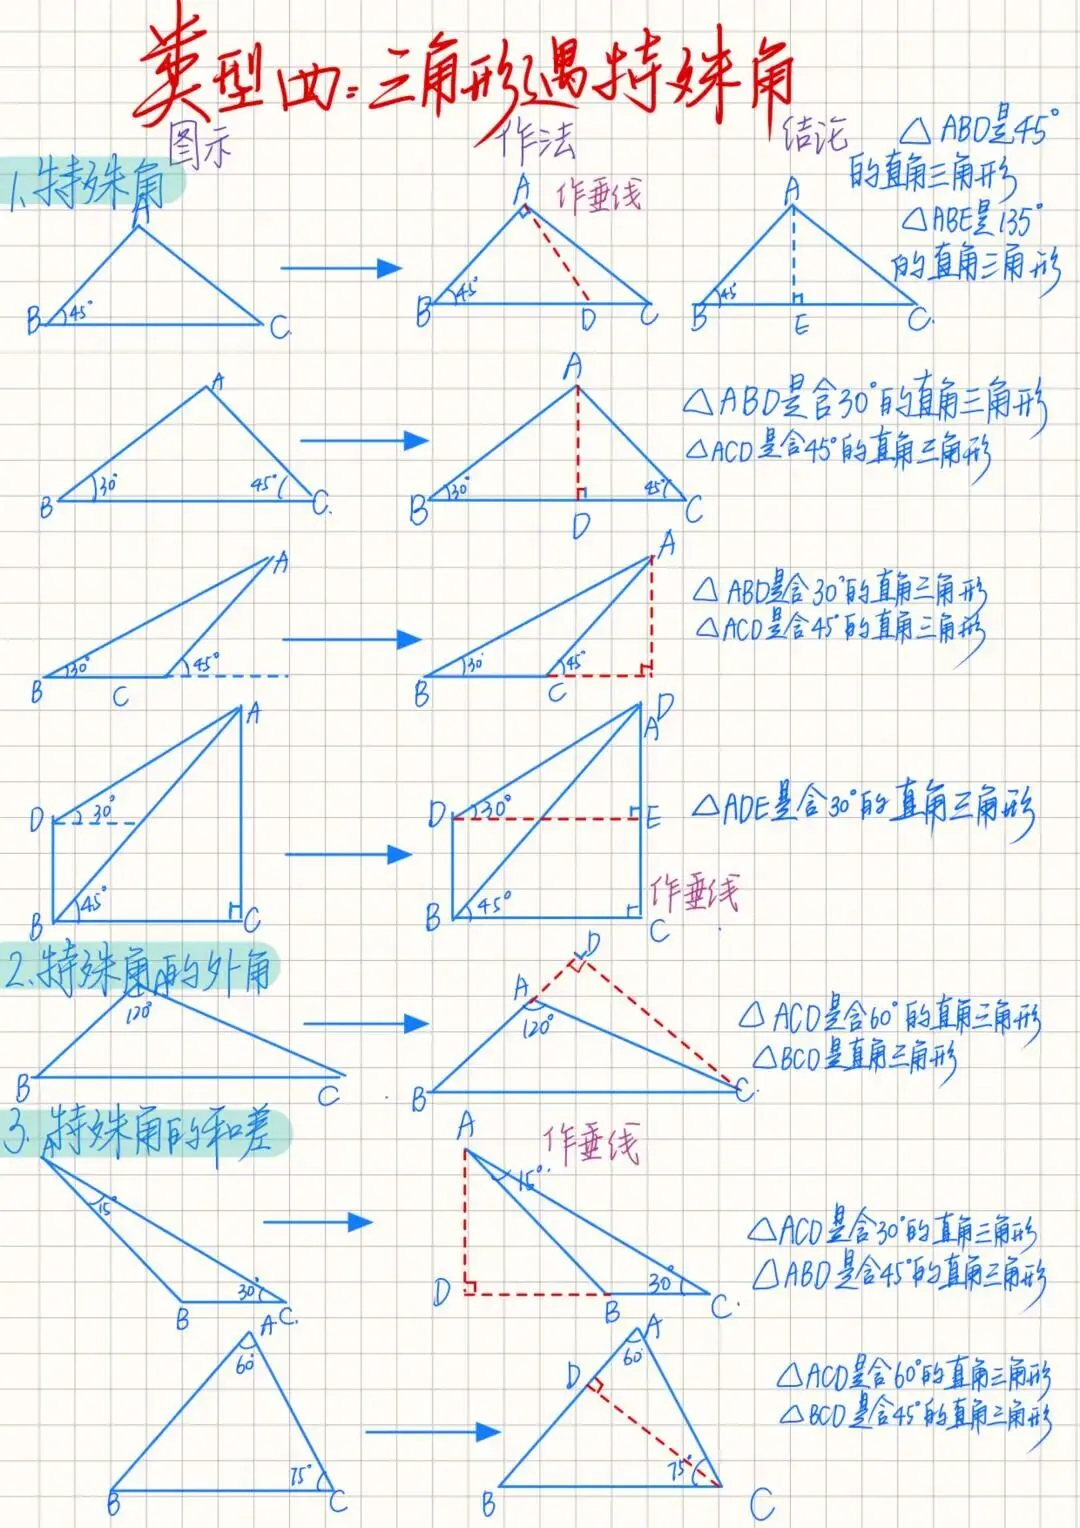 类型四:三角形遇特殊角
图示 作法 结论
△ABD是45°
的直角三角形
△ABE是135°
的直角三角形
1.特殊角
作垂线
A B 45° C
A B 45° D C
A B 45° E C
A B 30° 45° C
A B 30° 45° D C
△ABD是含30°的直角三角形
△ACD是含45°的直角三角形
A B 30° C 45°
A B 30° C 45° D
△ABD是含30°的直角三角形
△ACD是含45°的直角三角形
A D 30° B 45° C
A D 30° E B 45° C
△ADE是含30°的直角三角形
作垂线
2.特殊角的外角
A 120° B C
D A 120° B C
△ACD是含60°的直角三角形
△BCD是直角三角形
3.特殊角的和差
作垂线
A 15° B 30° C
A 15° D B 30° C
△ACD是含30°的直角三角形
△ABD是含45°的直角三角形
A 60° B 75° C
A 60° D B 75° C
△ACD是含60°的直角三角形
△BCD是含45°的直角三角形